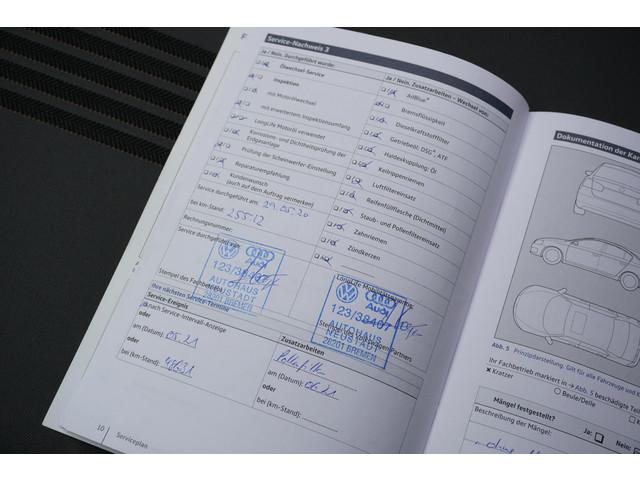 Service-Nachweis 3
Ja / Nein. Durchgeführt wurde:
Ölwechsel-Service
Inspektion
mit Motorölwechsel
mit erweitertem Inspektionsumfang
LongLife Motoröl verwendet
Korrosions- und Dichtheitsprüfung der
Erdgasanlage
Prüfung der Scheinwerfer-Einstellung
Reparaturempfehlung
Kundenwunsch
(auch auf dem Auftrag vermerken)
Service durchgeführt am: 29.05.20
bei km-Stand: 25512
Rechnungsnummer:
Service durchgeführt von:
123/38407
AUTOHAUS
NEUSTADT
28201 BREMEN
Stempel des Fachbetriebs
Ja / Nein. Zusatzarbeiten – Wechsel von:
AdBlue®
Bremsflüssigkeit
Dieselkraftstofffilter
Getriebeöl: DSG®, ATF
Haldexkupplung: Öl
Keilrippenriemen
Luftfiltereinsatz
Reifenfüllflasche (Dichtmittel)
Staub- und Pollenfiltereinsatz
Zahnriemen
Zündkerzen
LongLife Mobilitätsgarantie
Audi
123/38407
AUTOHAUS
NEUSTADT
28201 BREMEN
Ihre nächsten Service-Termine
Service-Ereignis
nach Service-Intervall-Anzeige
oder
am (Datum): 05.21
oder
bei (km-Stand):
Zusatzarbeiten
am (Datum): 06.21
oder
bei (km-Stand):
10 Serviceplan
Dokumentation der Kar
Abb. 5 Prinzipdarstellung. Gilt für alle Fahrzeuge und K
Ihr Fachbetrieb markiert in → Abb. 5 beschädigte Teil
Kratzer
Beule/Delle
Mängel festgestellt?
Ja: Nein:
Beschreibung der Mängel: